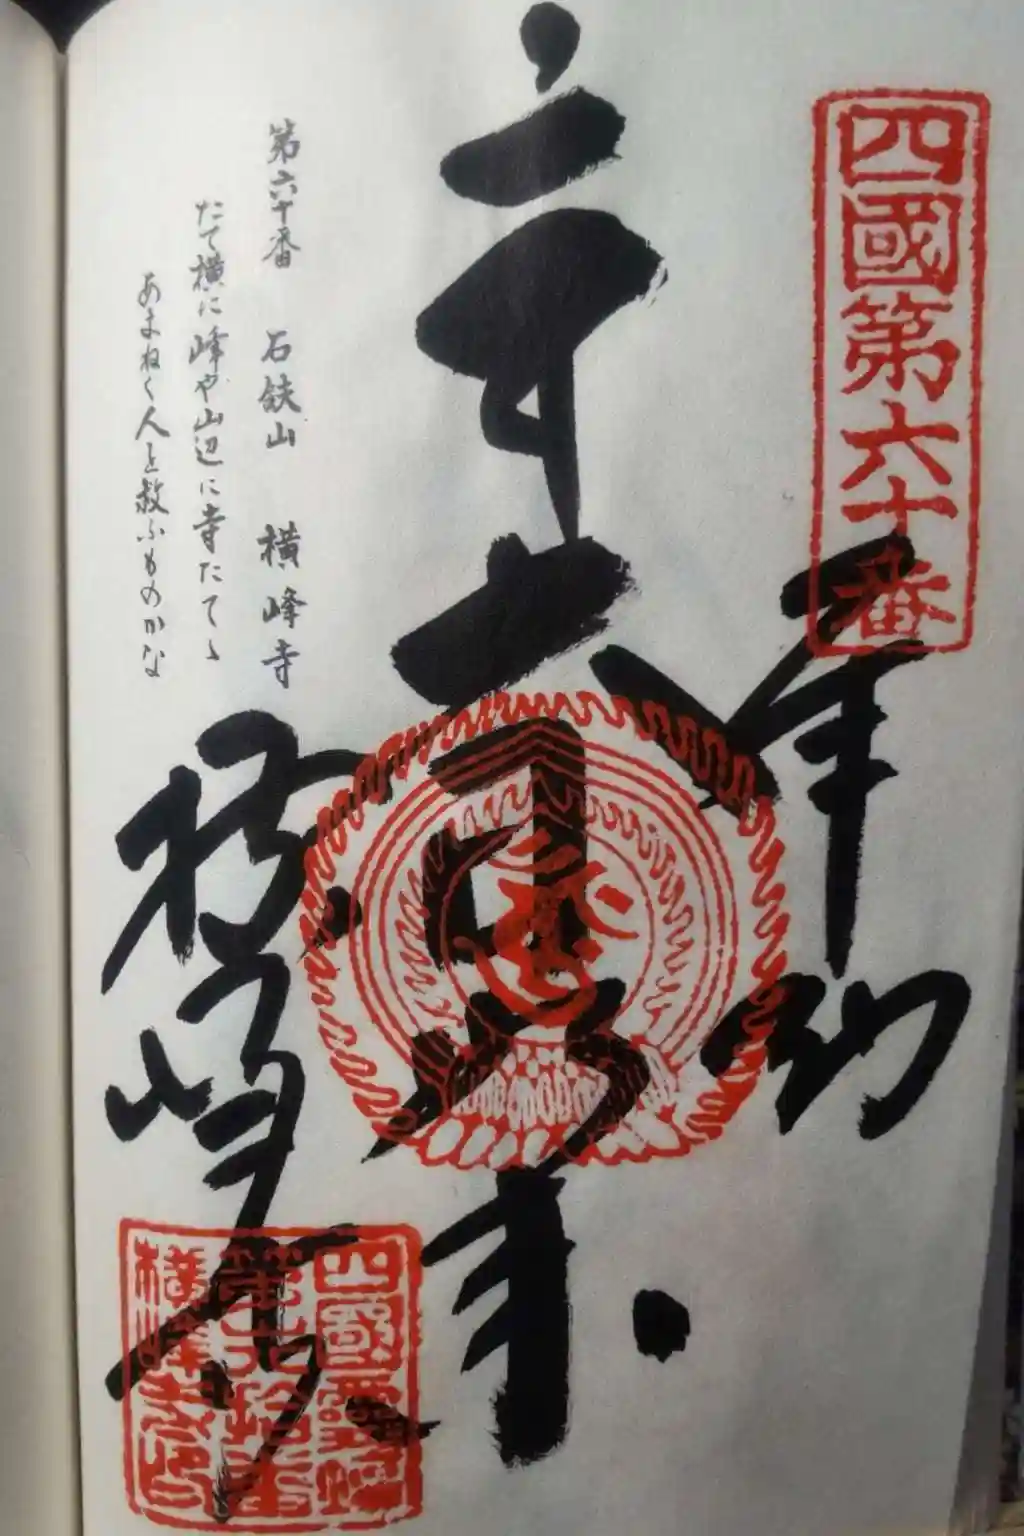 四國第六十番
奉納
大日如来
横峰寺
第六十番 石鈇山 横峰寺
たて横に峰や山辺に寺たてゝ
あまねく人を救ふものかな
四國霊場
第六拾番
横峰寺印